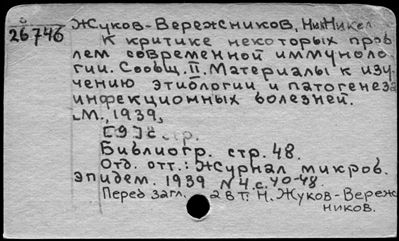 26746
Жуков-Вережников, Ник. Никол.
К критике некоторых проб
лем современной иммуноло-
гии. Сообщ. II. Материалы к изу-
чению этиологии и патогенеза
инфекционных болезней.
М., 1939,
[9] с. стр.
Библиогр. стр. 48.
Отд. отт.: Журнал микроб.
эпидем. 1939 №4. с. 40-48.
Перед загл. авт. Н. Жуков-Вереж
ников.